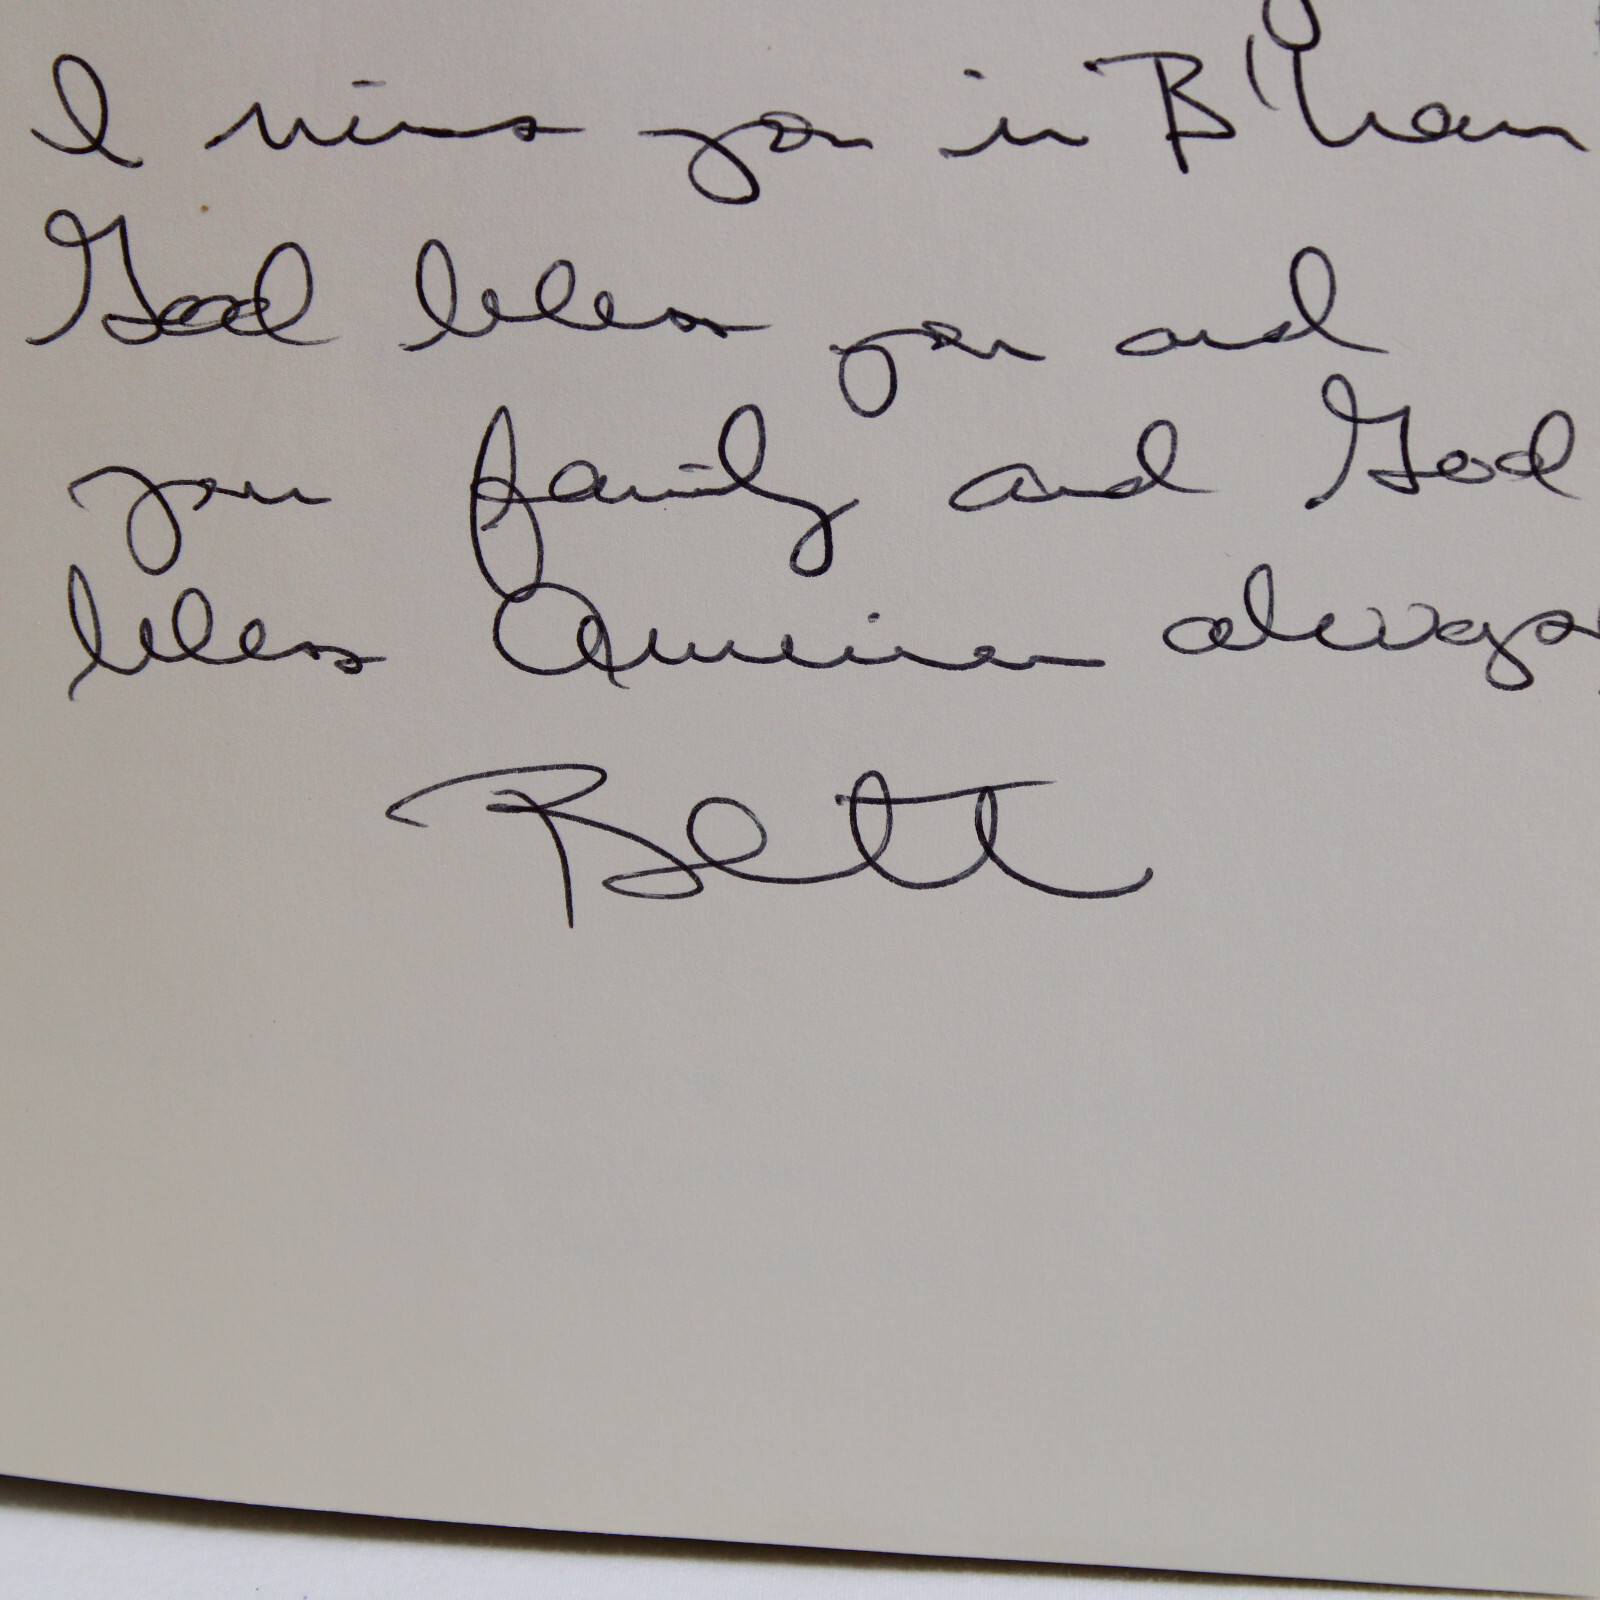 I miss you in B'ham
God bless you and
you family and God
bless America always
Bett